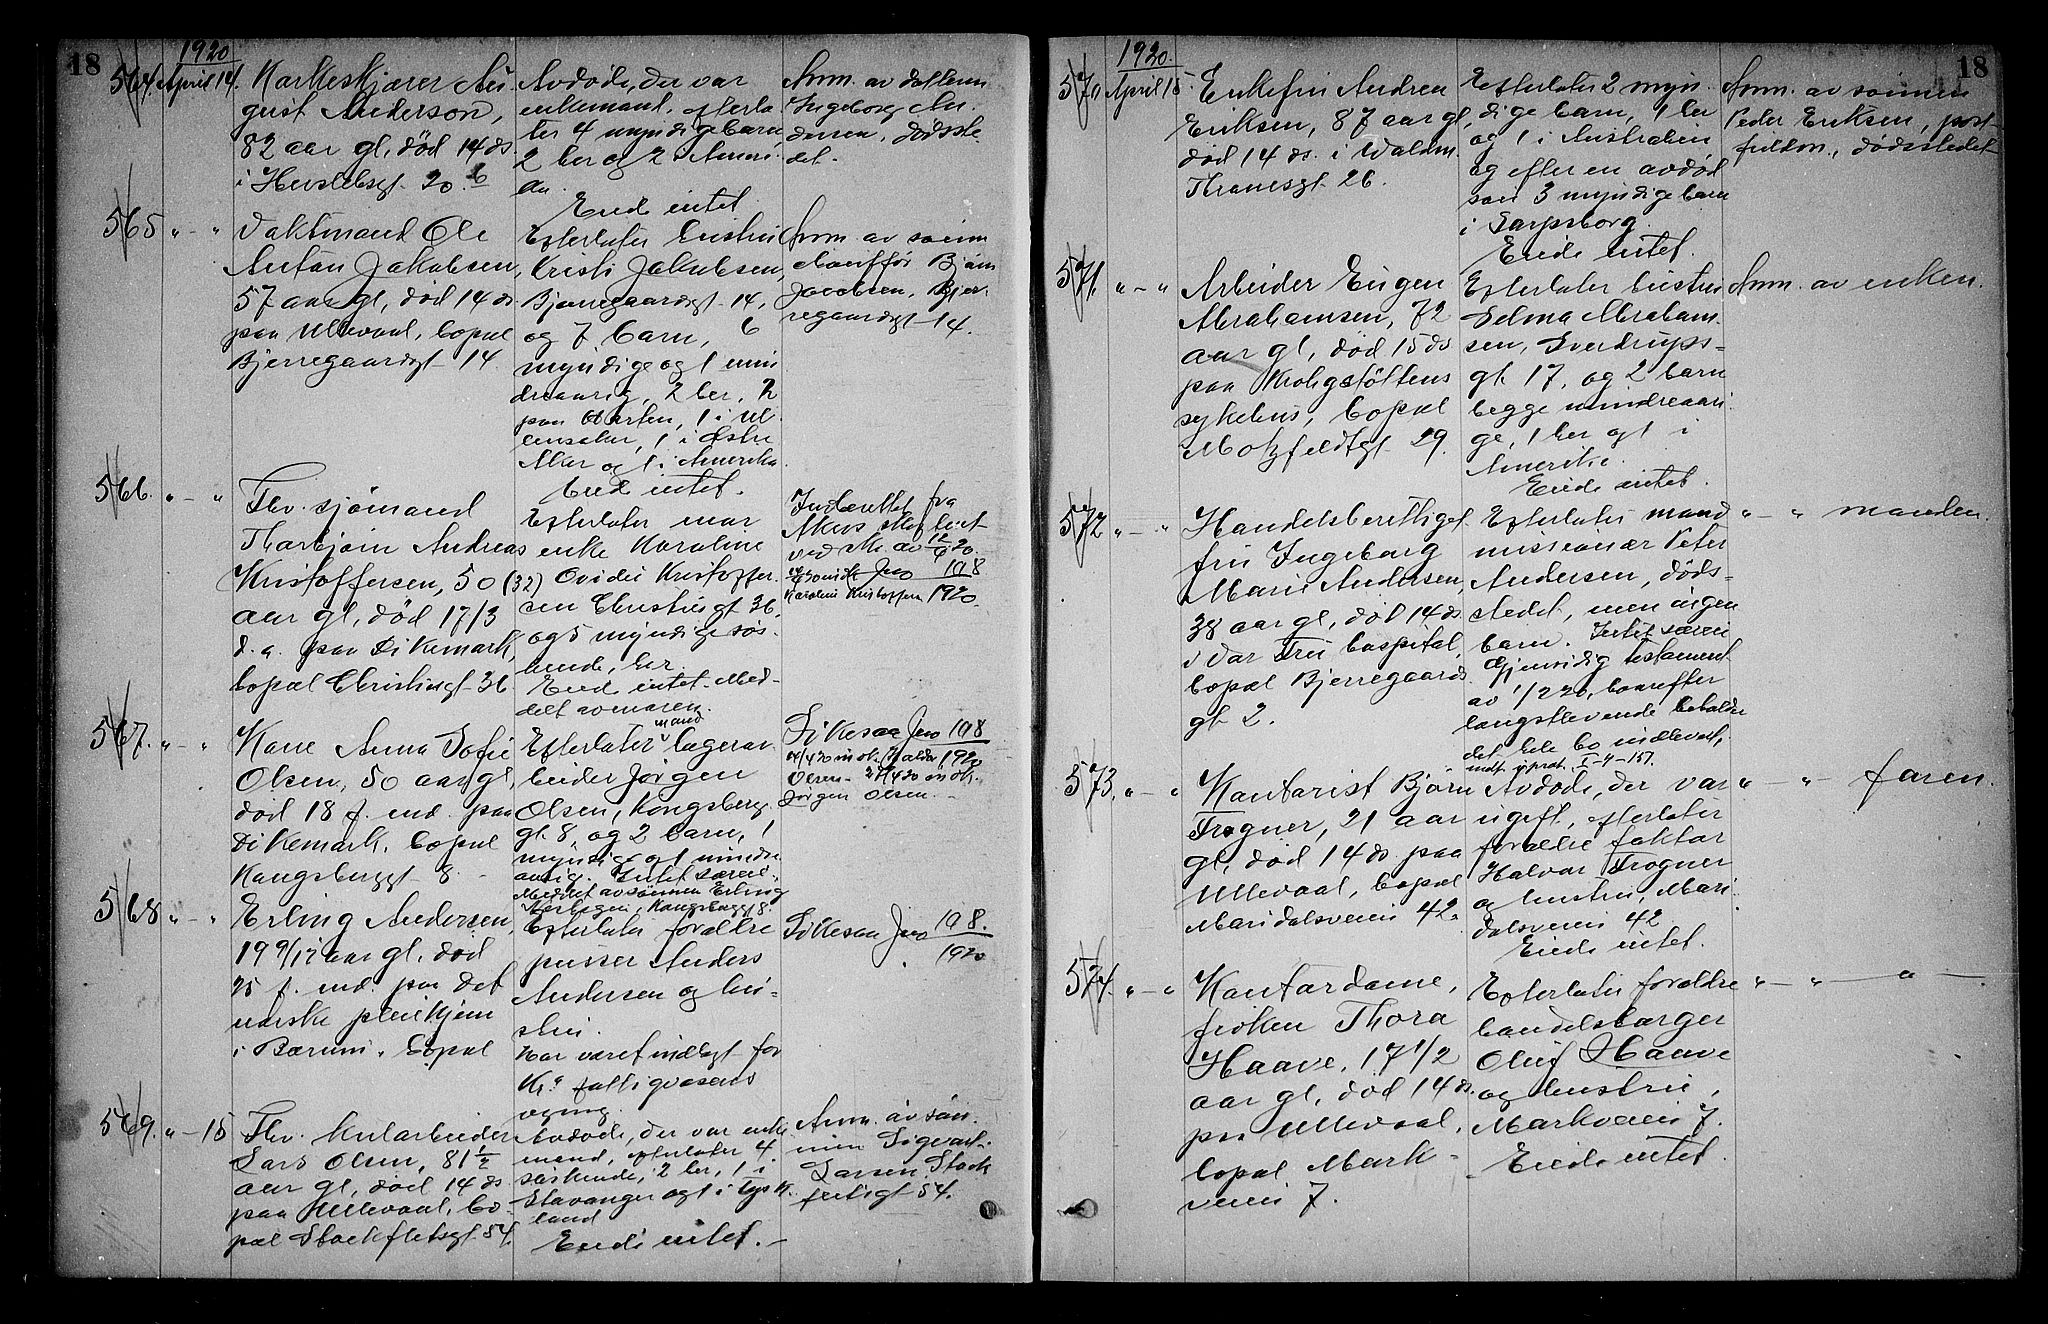 18
1920
564. April 14. Korkeskjærer Au
gust Anderson,
82 aar gl, død 14 ds.
i Herslebsgt. 20. b
Avdøde, der var
enkemand, efterla
ter 4 myndige barn
2 her og 2 i Ameri
ka.
Eiede intet.
Anm. av datteren
Ingeborg An
dersen, dødsste
det.
565 " - " Vaktmand Ole
Anton Jakobsen,
57 aar gl, død 14 ds
paa Ullevaal, bopæl
Bjerregaardsgt 14.
Efterlater hustru
Kristi Jakobsen,
Bjerregaardsgt 14,
og 7 barn, 6
myndige og 1 min
dreaarig, 2 her, 2
paa Hurten, 1 i Ul
lensaker, 1 i Østre
Aker og 1 i Amerika.
Eied intet.
Anm. av sønnen
Bjørn
Jacobsen, Bjer
regaardsgt 14.
566. " - " Fhv. sjømand
Thorbjørn Andreas
Kristoffersen, 50 (32)
aar gl, død 17/3
d. a. paa Dikemark,
bopæl Christiesgt 36
Efterlater mor
enke Karoline
Ovidie Kristoffer
sen Christiesgt 36,
og 5 myndige søs
kende, her.
Eied intet. Med-
delt av moren.
Indberettet fra
Akers
ved skr. av 12/4 20.
Jno 108
Karoline Kristoffersen 1920.
567. " - " Kone Anna Sofie
Olsen, 50 aar gl,
død 18 f. md. paa
Dikemark, bopæl
Kongsberggt 8
Efterlater mand lagerar
beider Jørgen
Olsen, Kongsberg
gt. 8, og 2 barn, 1
myndige og 1 mindre
aarig. Intet særeie.
Meddelt av sønnen Erling
Kongsberggt 8.
Likesaa Jno 108
1920
Olsen - 27/4 20 m ok.
Jørgen Olsen. -
568 " - " Erling Andersen,
19 9/12 aar gl, død
25 f. md. paa det
norske pleiehjem
i Bærum. Bopæl
Efterlater forældre
pusser Anders
Andersen og hu-
stru.
Har været indlagt for
Kra fattigvæsens
regning.
Likesaa Jno 108.
1920
569. " - 15 Fhv. kularbeider
Lars Olsen, 81 1/2
aar gl, død 14 ds
paa Ullevaal, bo-
pæl Stockfletsgt 54.
Avdøde, der var enke
mand, efterlater 4
søskende, 2 her, 1 i
Stavanger og 1 i Tysk
land
Eiede intet. -
Anm. av søn
nen Sigvart
Larsen Stock
fletsgt 54.
18
1920.
570 April 15. Enkefru Andrea
Eriksen, 87 aar gl,
død 14 ds. i Waldm.
Thranesgt 26.
Efterlater 2 myn
dige barn, 1 her
og 1 i Australien
og efter en avdød
søn 3 myndige barn
i Sarpsborg.
Eiede intet.
Anm. av sønnen
Peder Eriksen, post-
fuldm., dødsstedet
571. " - " Arbeider Eugen
Abrahamsen, 72
aar gl, død 15 ds
paa Krohgstøttens
sykehus, bopæl
Motzfeldtsgt 29.
Efterlater hustru
Selma Abraham
sen, Sverdrups-
gt. 17, og 2 barn
begge mindreaari
ge, 1 her og 1 i
Amerika.
Eiede intet.
Anm. av enken.
572 " - " Handelsberettiget
fru Ingeborg
Marie Andersen,
38 aar gl, død 14 ds.
i Vor Frue hospital,
bopæl Bjerregaards
gt. 2.
Efterlater mand
missionær Peter
Andersen, døds-
stedet, men ingen
barn. Intet særeie
Gjensidig testament
av 1/2 20, hvorefter
længstlevende beholder
det hele bo uskiftet,
indt. i prot. I-4-157.
" - " manden.
573. " - " Kontorist Bjørn
Frogner, 21 aar
gl, død 14 ds. paa
Ullevaal, bopæl
Maridalsveien 42.
Avdøde, der var
ugift, efterlater
forældre faktor
Halvor Frogner
og hustru, Mari
dalsveien 42
Eiede intet.
" - " - faren.
574. " - " Kontordame,
frøken Thora
Haave, 17 1/2
aar gl, død 14 ds.
paa Ullevaal,
bopæl Mark-
veien 7.
Efterlater forældre
handelsborger
Oluf Haave
og hustru,
Markveien 7.
Eiede intet.
" - " - " -